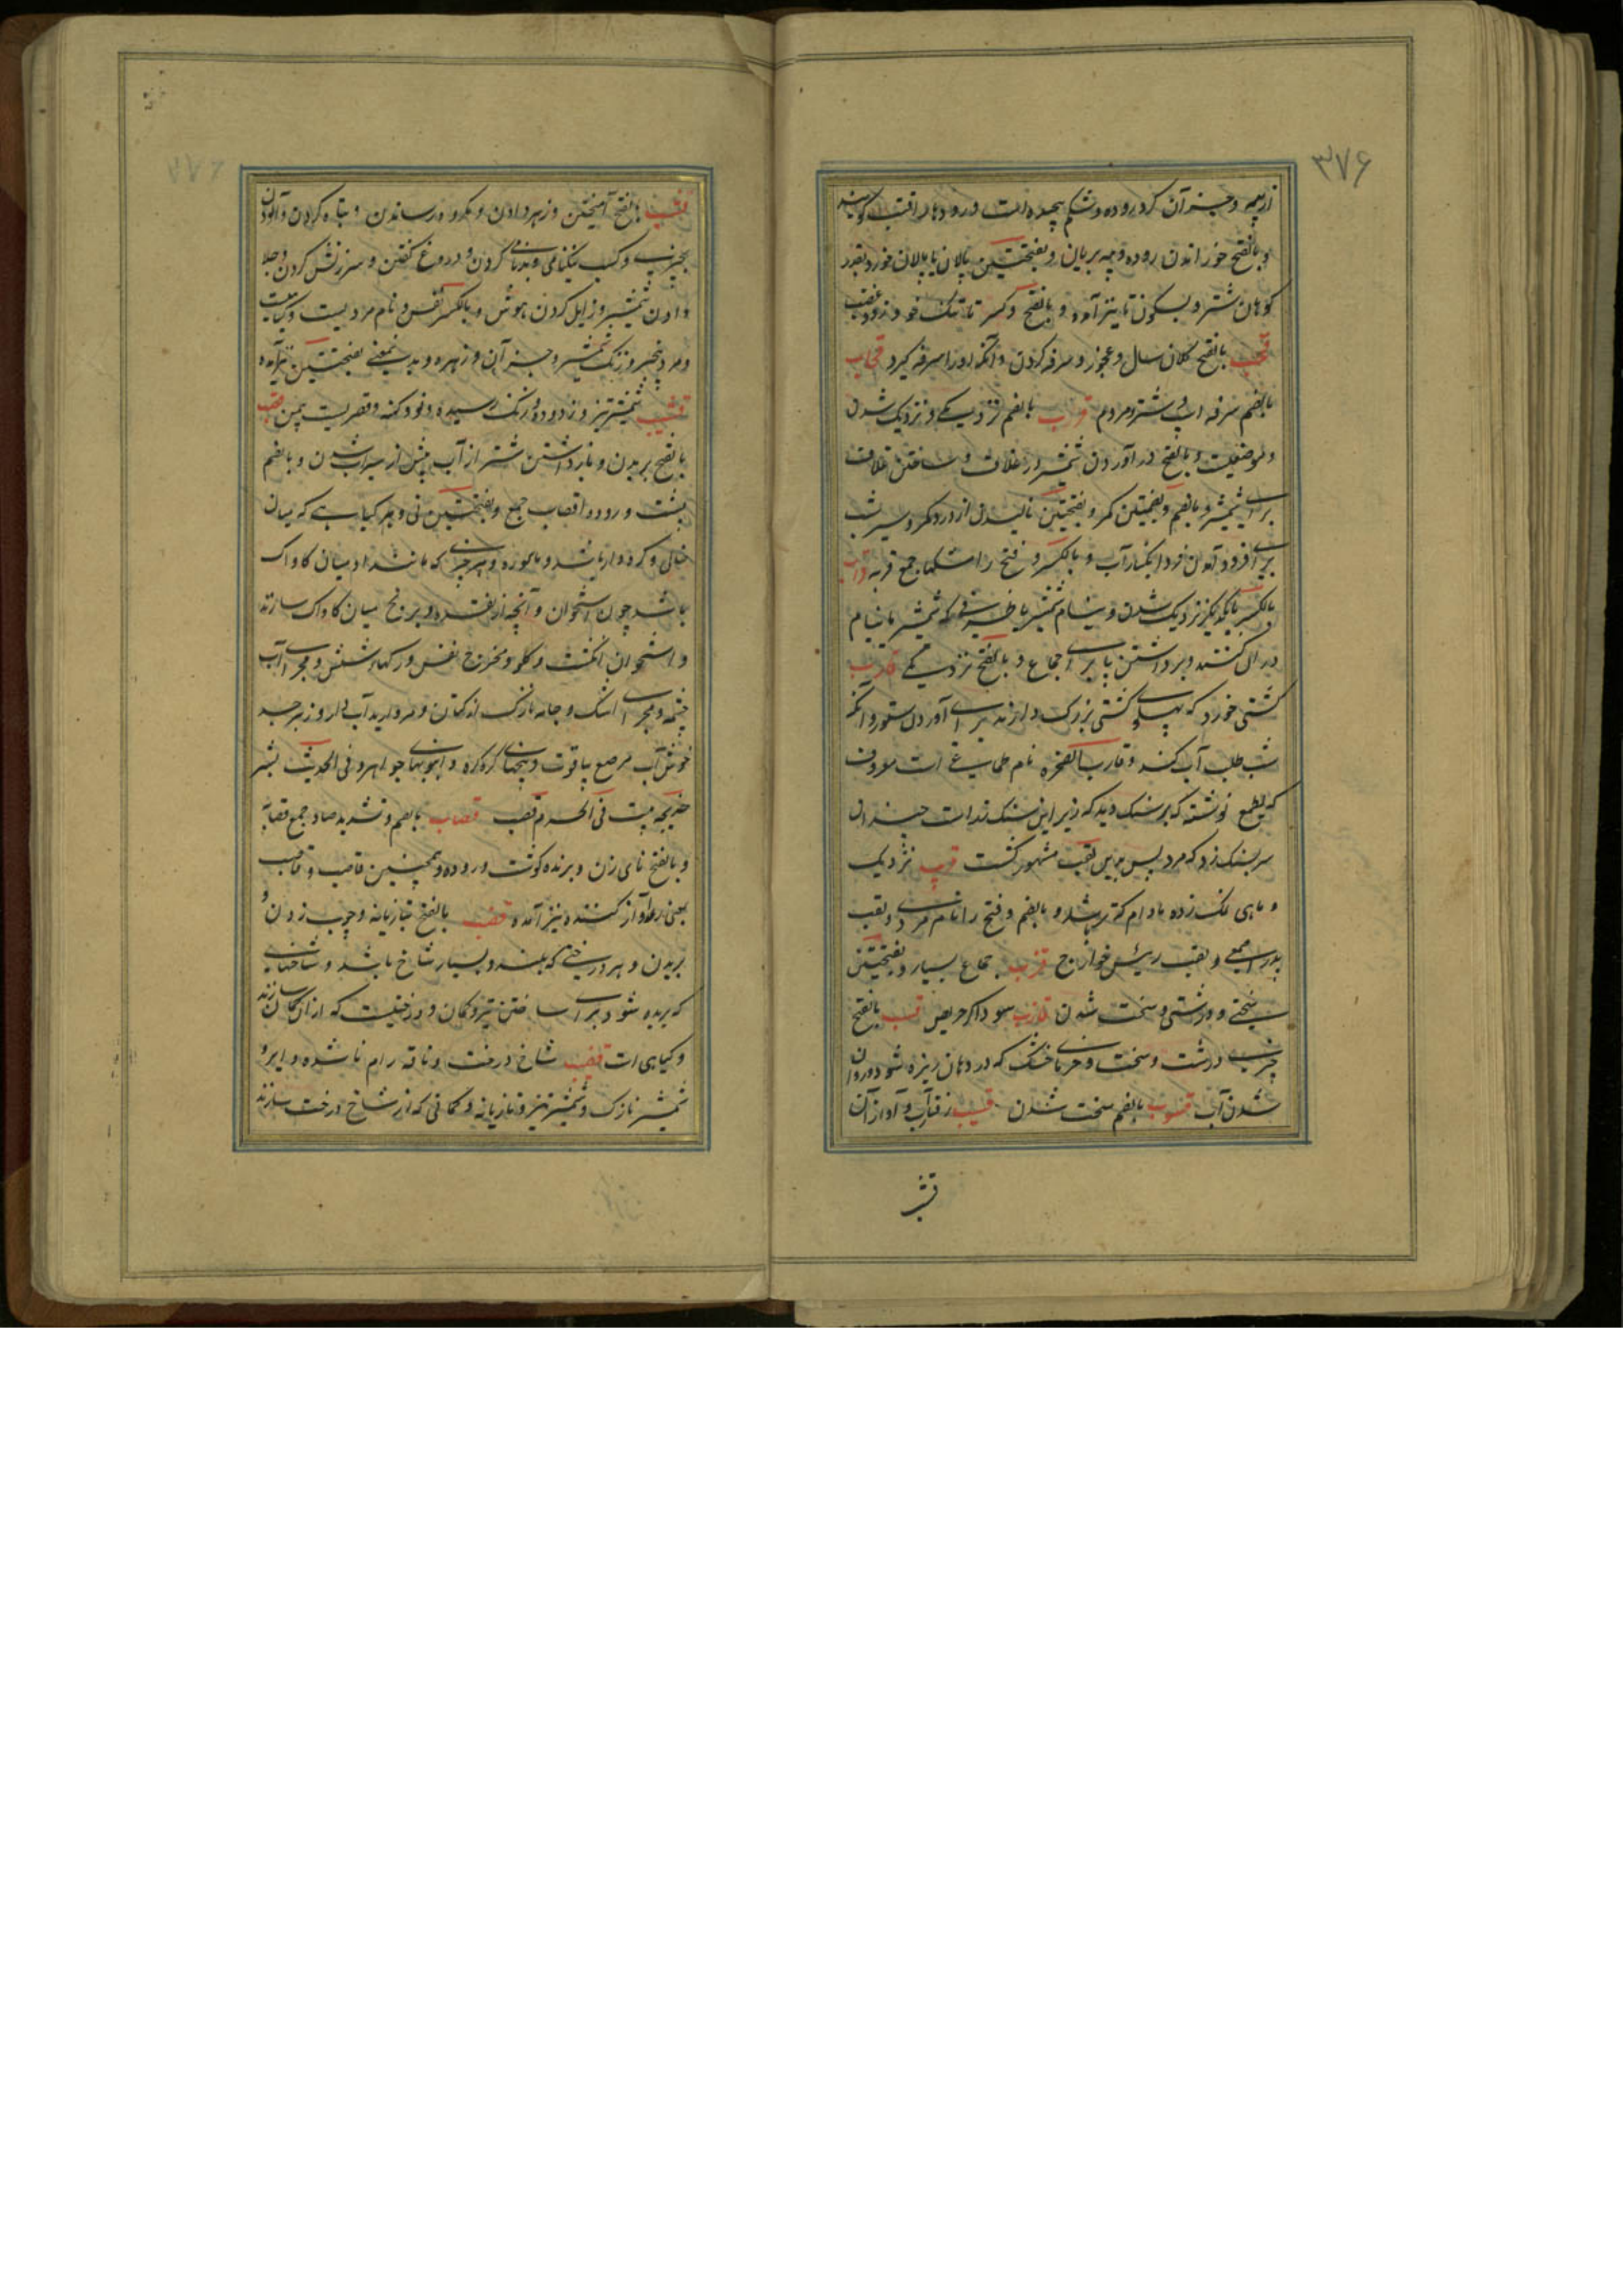 ۳۷۶
از پیه و جز آن که در روده و شکم پیچیده است و رودها را قتب گویند
و بالفتح خوراندن روده و پیه بریان و بفتحتین پالان یا پالان خورد بقدر
کوهان شتر و بسکون تا نیز آمده و بالفتح و کسر تا تنک خو و زود غضب
قحب بالفتح کلان سال و عجوز و سرفه کردن و آنکه او را سرفه گیرد قحاب
بالضم سرفه اسپ و شتر و مردم قرب بالضم نزدیکی و نزدیک شدن
و موضعیست و بالفتح در آوردن شمشیر در غلاف و ساختن غلاف
برای شمشیر و بالضم و بضمتین کمر و بفتحتین نالیدن از درد کمر و سیر شب
برای فرود آمدن فردا بکنار آب و بالکسر و فتح را مشکها جمع قربه قراب
بالکسر بایکدیگر نزدیک شدن و نیام شمشیر یا ظرفی که شمشیر با نیام
در آن کنند و برداشتن پا برای جماع و بالفتح نزدیکی قارب
کشتی خورد که پهلوی کشتی بزرگ دارند برای آوردن ستور و آنکه
شب طلب آب کند و قارب الصخره نام طماعی است معروف
که بطمع نوشته که بر سنگ دید که زیر این سنک است چندان
سر بسنک زد که مرد پس باین لقب مشهور گشت قریب نزدیک
و ماهی نمک زده مادام که تر باشد و بالضم و فتح را نام مردی و لقب
پدر اصمعی و لقب رئیس خوارج قزب جماع بسیار و بفتحتین
سختی و درشتی و سخت شدن قازب سوداگر حریص قسب بالفتح
چیزی درشت و سخت و خرمای خشک که در دهان ریزه شود و روان
شدن آب قسوب بالضم سخت شدن قسیب رفتن آب و آواز آن
قشب
قشب بالفتح آمیختن و زهر دادن و مکروه رسانیدن و تباه کردن و آلودن
بچیزی و کسب نیکنامی و بدنامی کردن و دروغ گفتن و سرزنش کردن و جلا
دادن شمشیر و زایل کردن هوش و بالکسر نفس و نام مردیست و گیاهیست
و مرد بیخیر و زنگ شمشیر و جز آن و زهر و بدین معنی بفتحتین نیز آمده
قشیب شمشیر تیز و زدوده و زنگ رسیده و نو و کهنه و قصریست بیمن قصب
بالفتح بریدن و بازداشتن شتر از آب پیش از سیراب شدن و بالضم
پشت و روده اقصاب جمع و بفتحتین نی و هر گیاهی که میان
خالی و گره دار باشد و ماسوره و هر چیزی که مانند او میان کاواک
باشد چون استخوان و آنچه از نقره و برنج میان کاواک سازند
و استخوان انگشت و گلو و مخرج نفس و رگهای شش و مجرای آب
چشمه و مجرای اشک و جامه نازک از کتان و مروارید آبدار و زبرجد
خوش آب مرصع بیاقوت و پیچهای گره گره و انبوبها جواهر و فی الحدیث بشر
خدیجه ببیت فی الجنة من قصب قصاب بالضم و تشدید صاد جمع قصابه
و بالفتح نای زن و برنده گوشت و روده و همچنین قاصب و قاصب
بمعنی رعد آواز کننده نیز آمده قضب بالفتح بتازیانه و چوب زدن و
بریدن و هر درختی که بلند و بسیار شاخ باشد و شاخهای
که بریده شود برای ساختن تیر و کمان و درختیست که از آن کمان سازند
و گیاهی است قضیب شاخ درخت و ناقه رام ناشده و ایر و
شمشیر نازک و شمشیر تیز و تازیانه و کمانی که از شاخ درخت سازند